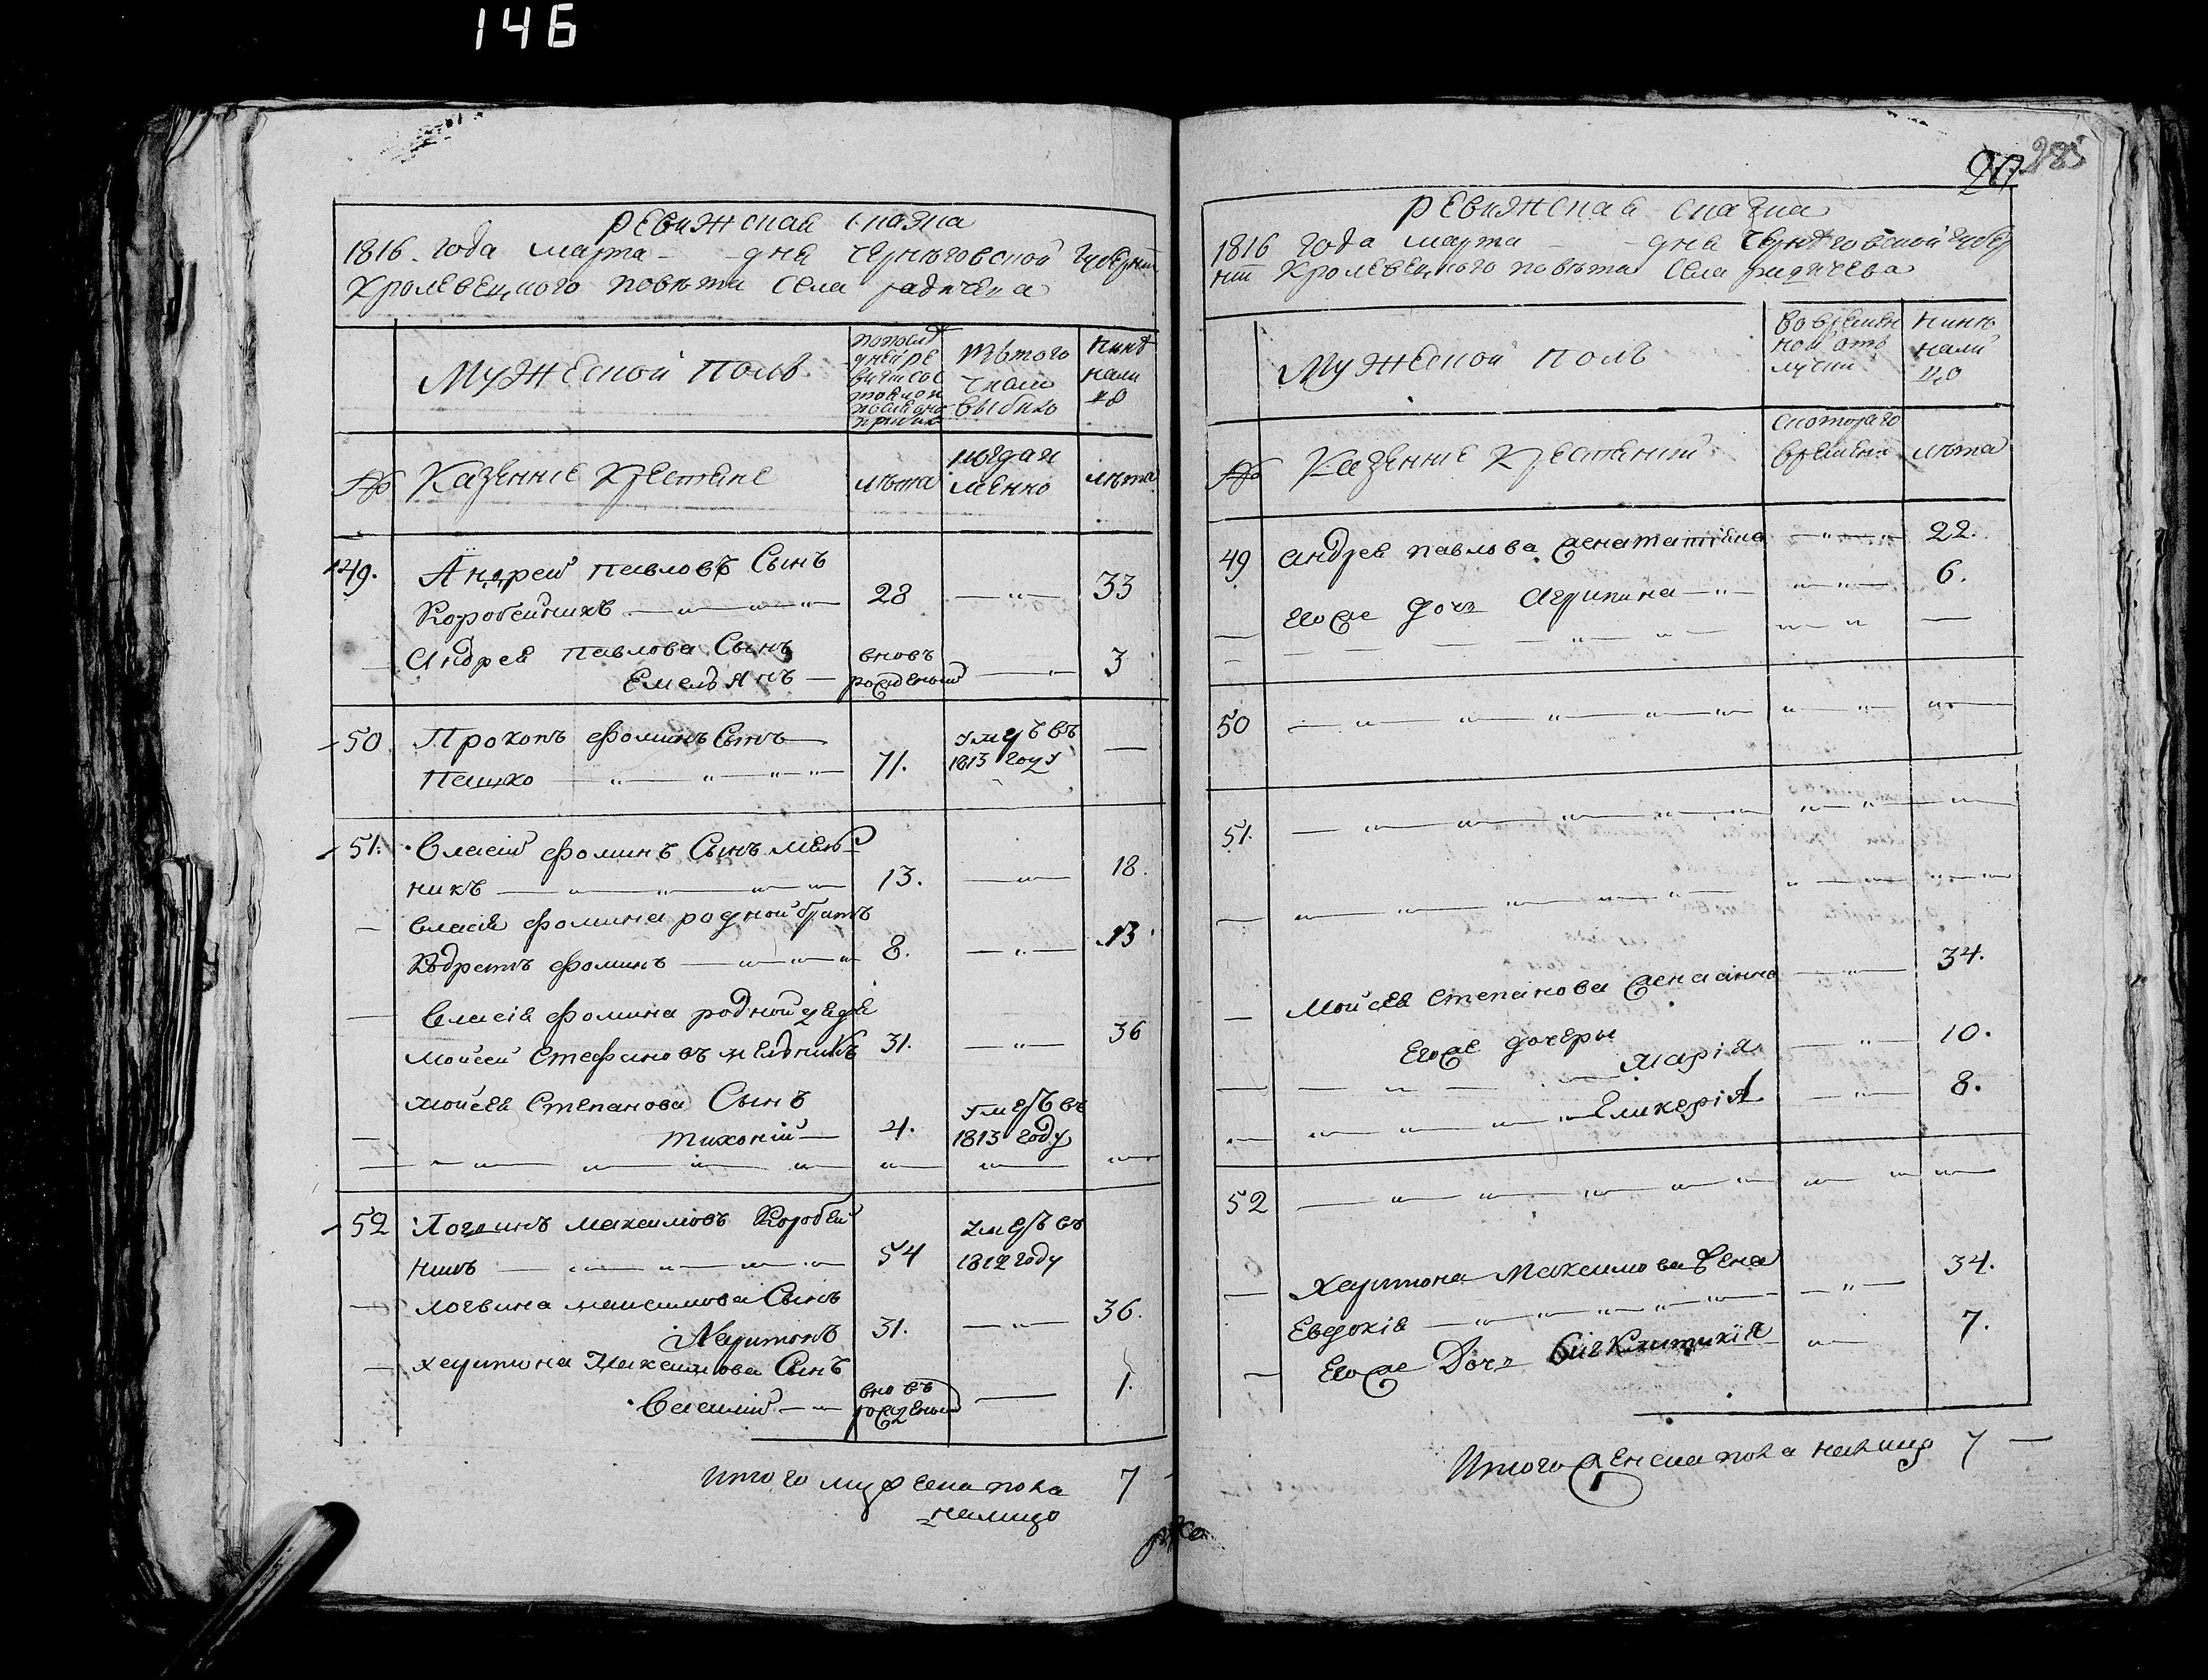 146
285
ревижская сказка
1816 года марта - - дня черниговской губернт
Кролевецкого повѣта села радичева
Мужеской полъ
по послѣд
ней ре
визти сос
тояло и
после оно
прибило
изъ того
числа
выбило
нинѣ
нали
цо
№ Казенние крестяне
лѣта
когда и
менно
лѣта
49. Андрей павловъ Сынъ
Коробейникъ 28 33
Андрея павлова Сынъ
Емельянъ вновъ рожденый 3
50 Прокопъ фоминъ Сынъ
Пешко 71. умеръ въ 1813 году
51. Власий фоминъ Сынъ мель
никъ 13. 18.
власия фомина родной братъ
Кодратъ фоминъ 8. 13
власия фомина родной дядя
мойсей Стефановъ мельникъ 31. 36
мойсея Степанова Сынъ
тихоний 4. умеръ въ 1813 году
52 Логвинъ максимовъ Коробей
никъ 54 умеръ въ 1812 году
логвина максимова Сынъ
Харитонъ 31. 36.
харитона Максимова Сынъ
Василий вновъ рожденый 1.
Итого мужеска пола 7
налицо
ревижская сказка
1816 года марта - - дня черниговской губер
нт кролевецкого повѣта села радичева
Мужеской полъ
во времен
ной отъ
лучки
нинѣ
нали
цо
№ Казенние крестяний
скоторого
времени
лѣта
49 андрея павлова жена татияна 22.
его же дочь Агрипина 6.
50
51.
Мойсея степанова жена анна 34.
его же дочеры
мария 10.
Гликерия 8.
52
харитона Максимова жена 34.
Евдокия
Его же Дочь 7.
Итого женска пола налицо 7